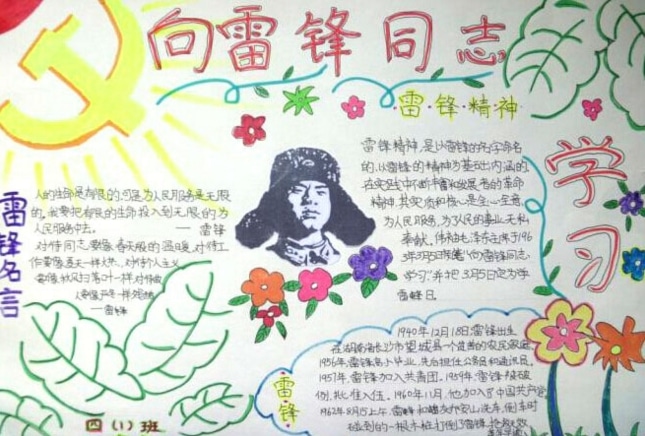 向雷锋同志
学习
雷·锋·精·神
雷锋精神,是以雷锋的名字命名
的、以雷锋的精神为基本内涵的、
在实践中不断丰富和发展着的革命
精神,其实质和核心是全心全意
为人民服务,为了人民的事业无私
奉献。伟大领袖毛泽东主席于196
3年3月5日
向雷锋同志
学习",并把3月5日定为学
雷锋日。
雷锋名言
人的生命是有限的,可是为人民服务是无限
的,我要把有限的生命投入到无限的为
人民服务中去。 ——雷锋
对待同志要像春天般的温暖,对待工
作要像夏天一样火热,对待个人主义
要像秋风扫落叶一样,对待敌
人要像严冬一样
——雷锋
雷锋
1940年12月18日,雷锋出生
在湖南省长沙市望城县一个贫苦的农民家庭
1956年,雷锋小学毕业,先后担任公务员和通讯员。
1957年,雷锋加入共青团。1959年,雷锋
批准入伍。1960年11月,他加入了中国共产党
1962年8月15日上午,雷锋和
洗车,倒车时
碰到的一根木桩打倒了雷锋,抢救无效
四(1)班